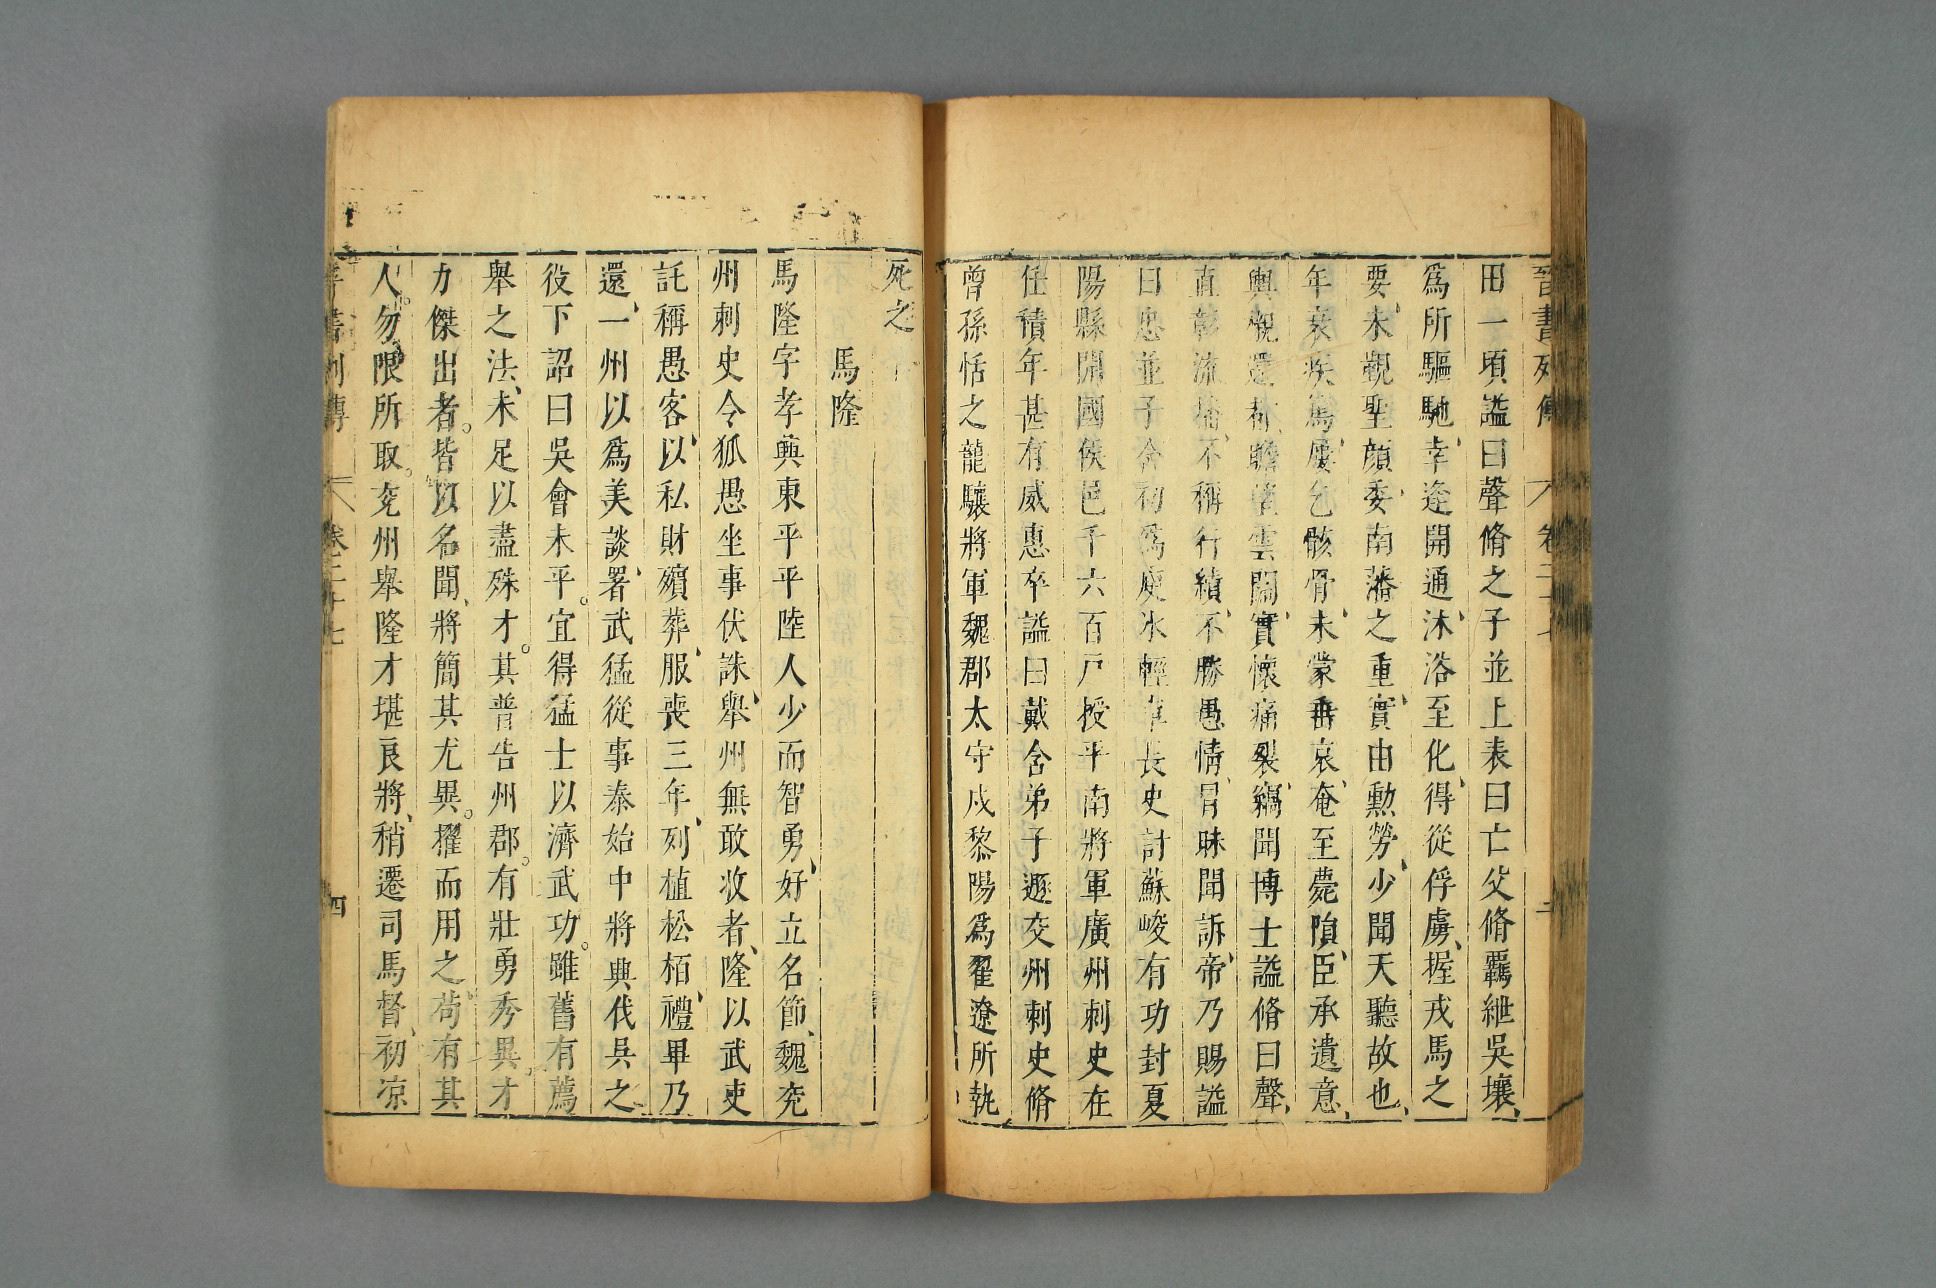 晉書列傳 卷二十七
田一頃謚曰聲脩之子並上表曰亡父脩羈紲吳壤
爲所驅馳幸逢開通沐浴至化得從俘虜握戎馬之
要未覲聖顏委南藩之重實由勲勞少聞天聽故也
年衰疾篤屢乞骸骨未蒙垂哀奄至薨隕臣承遺意
輿櫬還都瞻望雲闕實懷痛裂竊聞博士謚脩曰聲
直彰流播不稱行績不勝愚情冒昧聞訴帝乃賜謚
曰忠並子含初爲庾冰輕車長史討蘇峻有功封夏
陽縣開國侯邑千六百戶授平南將軍廣州刺史在
任積年甚有威惠卒謚曰戴含弟子遯交州刺史脩
曾孫恬之龍驤將軍魏郡太守戍黎陽爲翟遼所執
死之
馬隆
馬隆字孝興東平平陸人少而智勇好立名節魏兗
州刺史令狐愚坐事伏誅舉州無敢收者隆以武吏
託稱愚客以私財殯葬服喪三年列植松栢禮畢乃
還一州以爲美談署武猛從事泰始中將興伐吳之
役下詔曰吳會未平宜得猛士以濟武功雖舊有薦
舉之法未足以盡殊才其普告州郡有壯勇秀異才
力傑出者皆以名聞將簡其尤異擢而用之苟有其
人勿限所取兗州舉隆才堪良將稍遷司馬督初凉
晉書列傳 卷二十七 四